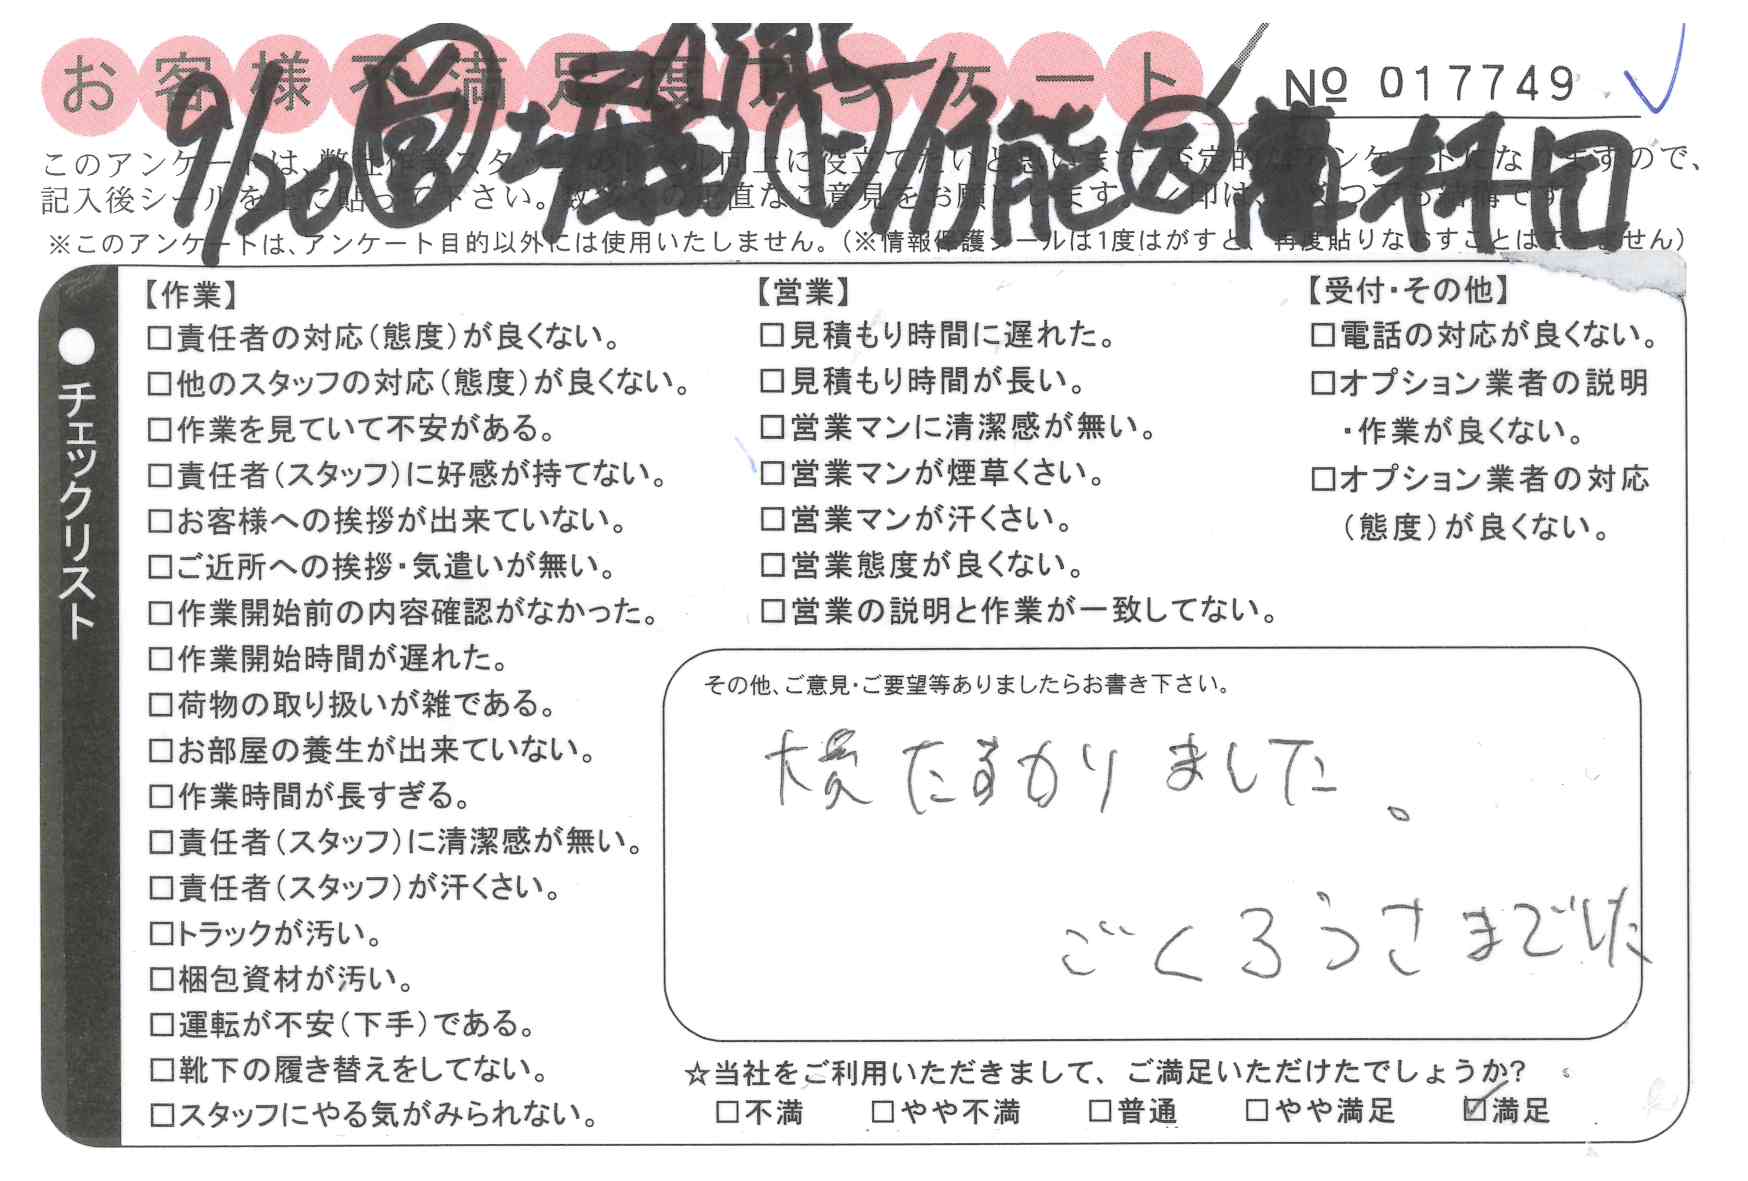 お客様不満足度アンケート
№ 017749
9/20
このアンケートは、弊社作業スタッフの 向上に役立てたいと思います。否定的なアンケートになりますので、
記入後シールを上に貼って下さい。 正直なご意見をお願いします。
※このアンケートは、アンケート目的以外には使用いたしません。（※情報保護シールは1度はがすと、再度貼りなおすことはできません）
●チェックリスト
【作業】
□責任者の対応（態度）が良くない。
□他のスタッフの対応（態度）が良くない。
□作業を見ていて不安がある。
□責任者（スタッフ）に好感が持てない。
□お客様への挨拶が出来ていない。
□ご近所への挨拶・気遣いが無い。
□作業開始前の内容確認がなかった。
□作業開始時間が遅れた。
□荷物の取り扱いが雑である。
□お部屋の養生が出来ていない。
□作業時間が長すぎる。
□責任者（スタッフ）に清潔感が無い。
□責任者（スタッフ）が汗くさい。
□トラックが汚い。
□梱包資材が汚い。
□運転が不安（下手）である。
□靴下の履き替えをしてない。
□スタッフにやる気がみられない。
【営業】
□見積もり時間に遅れた。
□見積もり時間が長い。
□営業マンに清潔感が無い。
□営業マンが煙草くさい。
□営業マンが汗くさい。
□営業態度が良くない。
□営業の説明と作業が一致してない。
【受付・その他】
□電話の対応が良くない。
□オプション業者の説明
・作業が良くない。
□オプション業者の対応
（態度）が良くない。
その他、ご意見・ご要望等ありましたらお書き下さい。
大変たすかりました。
ごくろうさまでした
☆当社をご利用いただきまして、ご満足いただけたでしょうか?
□不満 □やや不満 □普通 □やや満足 ☑満足